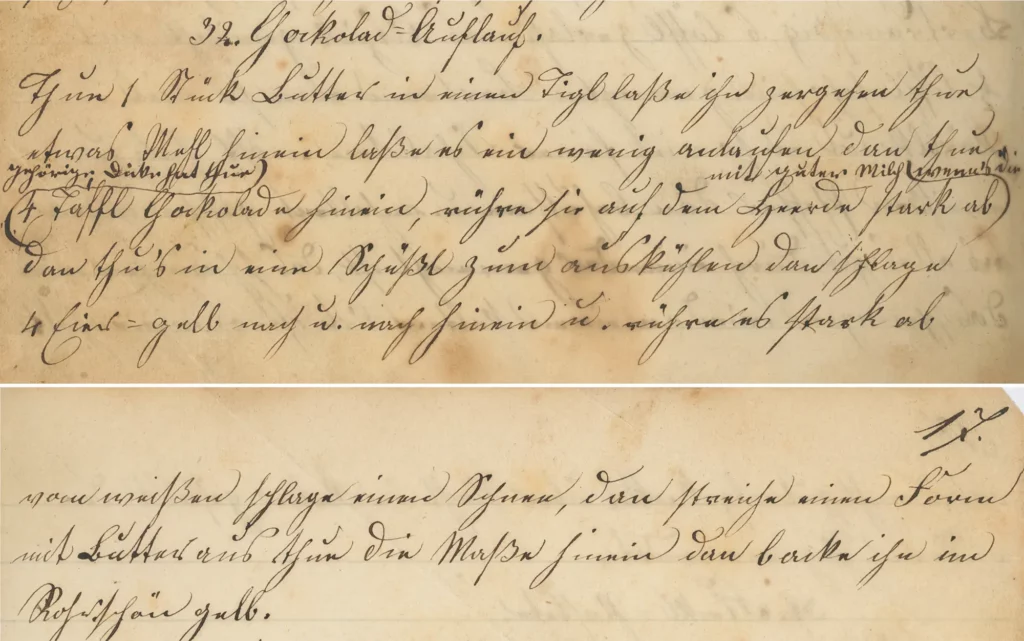 32. Chockolad=Auflauf.
Thue 1 Stück Butter in einen Tigl laße ihn zergehen thue
etwas Mehl hinein laße es ein wenig anlaufen dan thue
gehörige Dicke hat thue) mit guter Milch (wenn's die
(4 Taffl Chockolade hinein, rühre sie auf dem Heerde stark ab)
dan thu's in eine Schüßl zum auskühlen dan schlage
4 Eier=gelb nach u. nach hinein u. rühre es stark ab
17.
vom weißen schlage einen Schnee, dan streiche einen Form
mit Butter aus thue die Maße hinein dan backe ihn im
Rohr schön gelb.